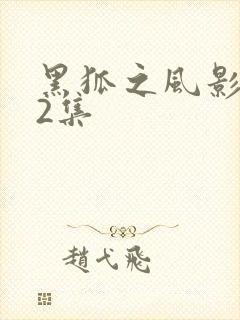 黑狐之風影
2集
趙弋飛